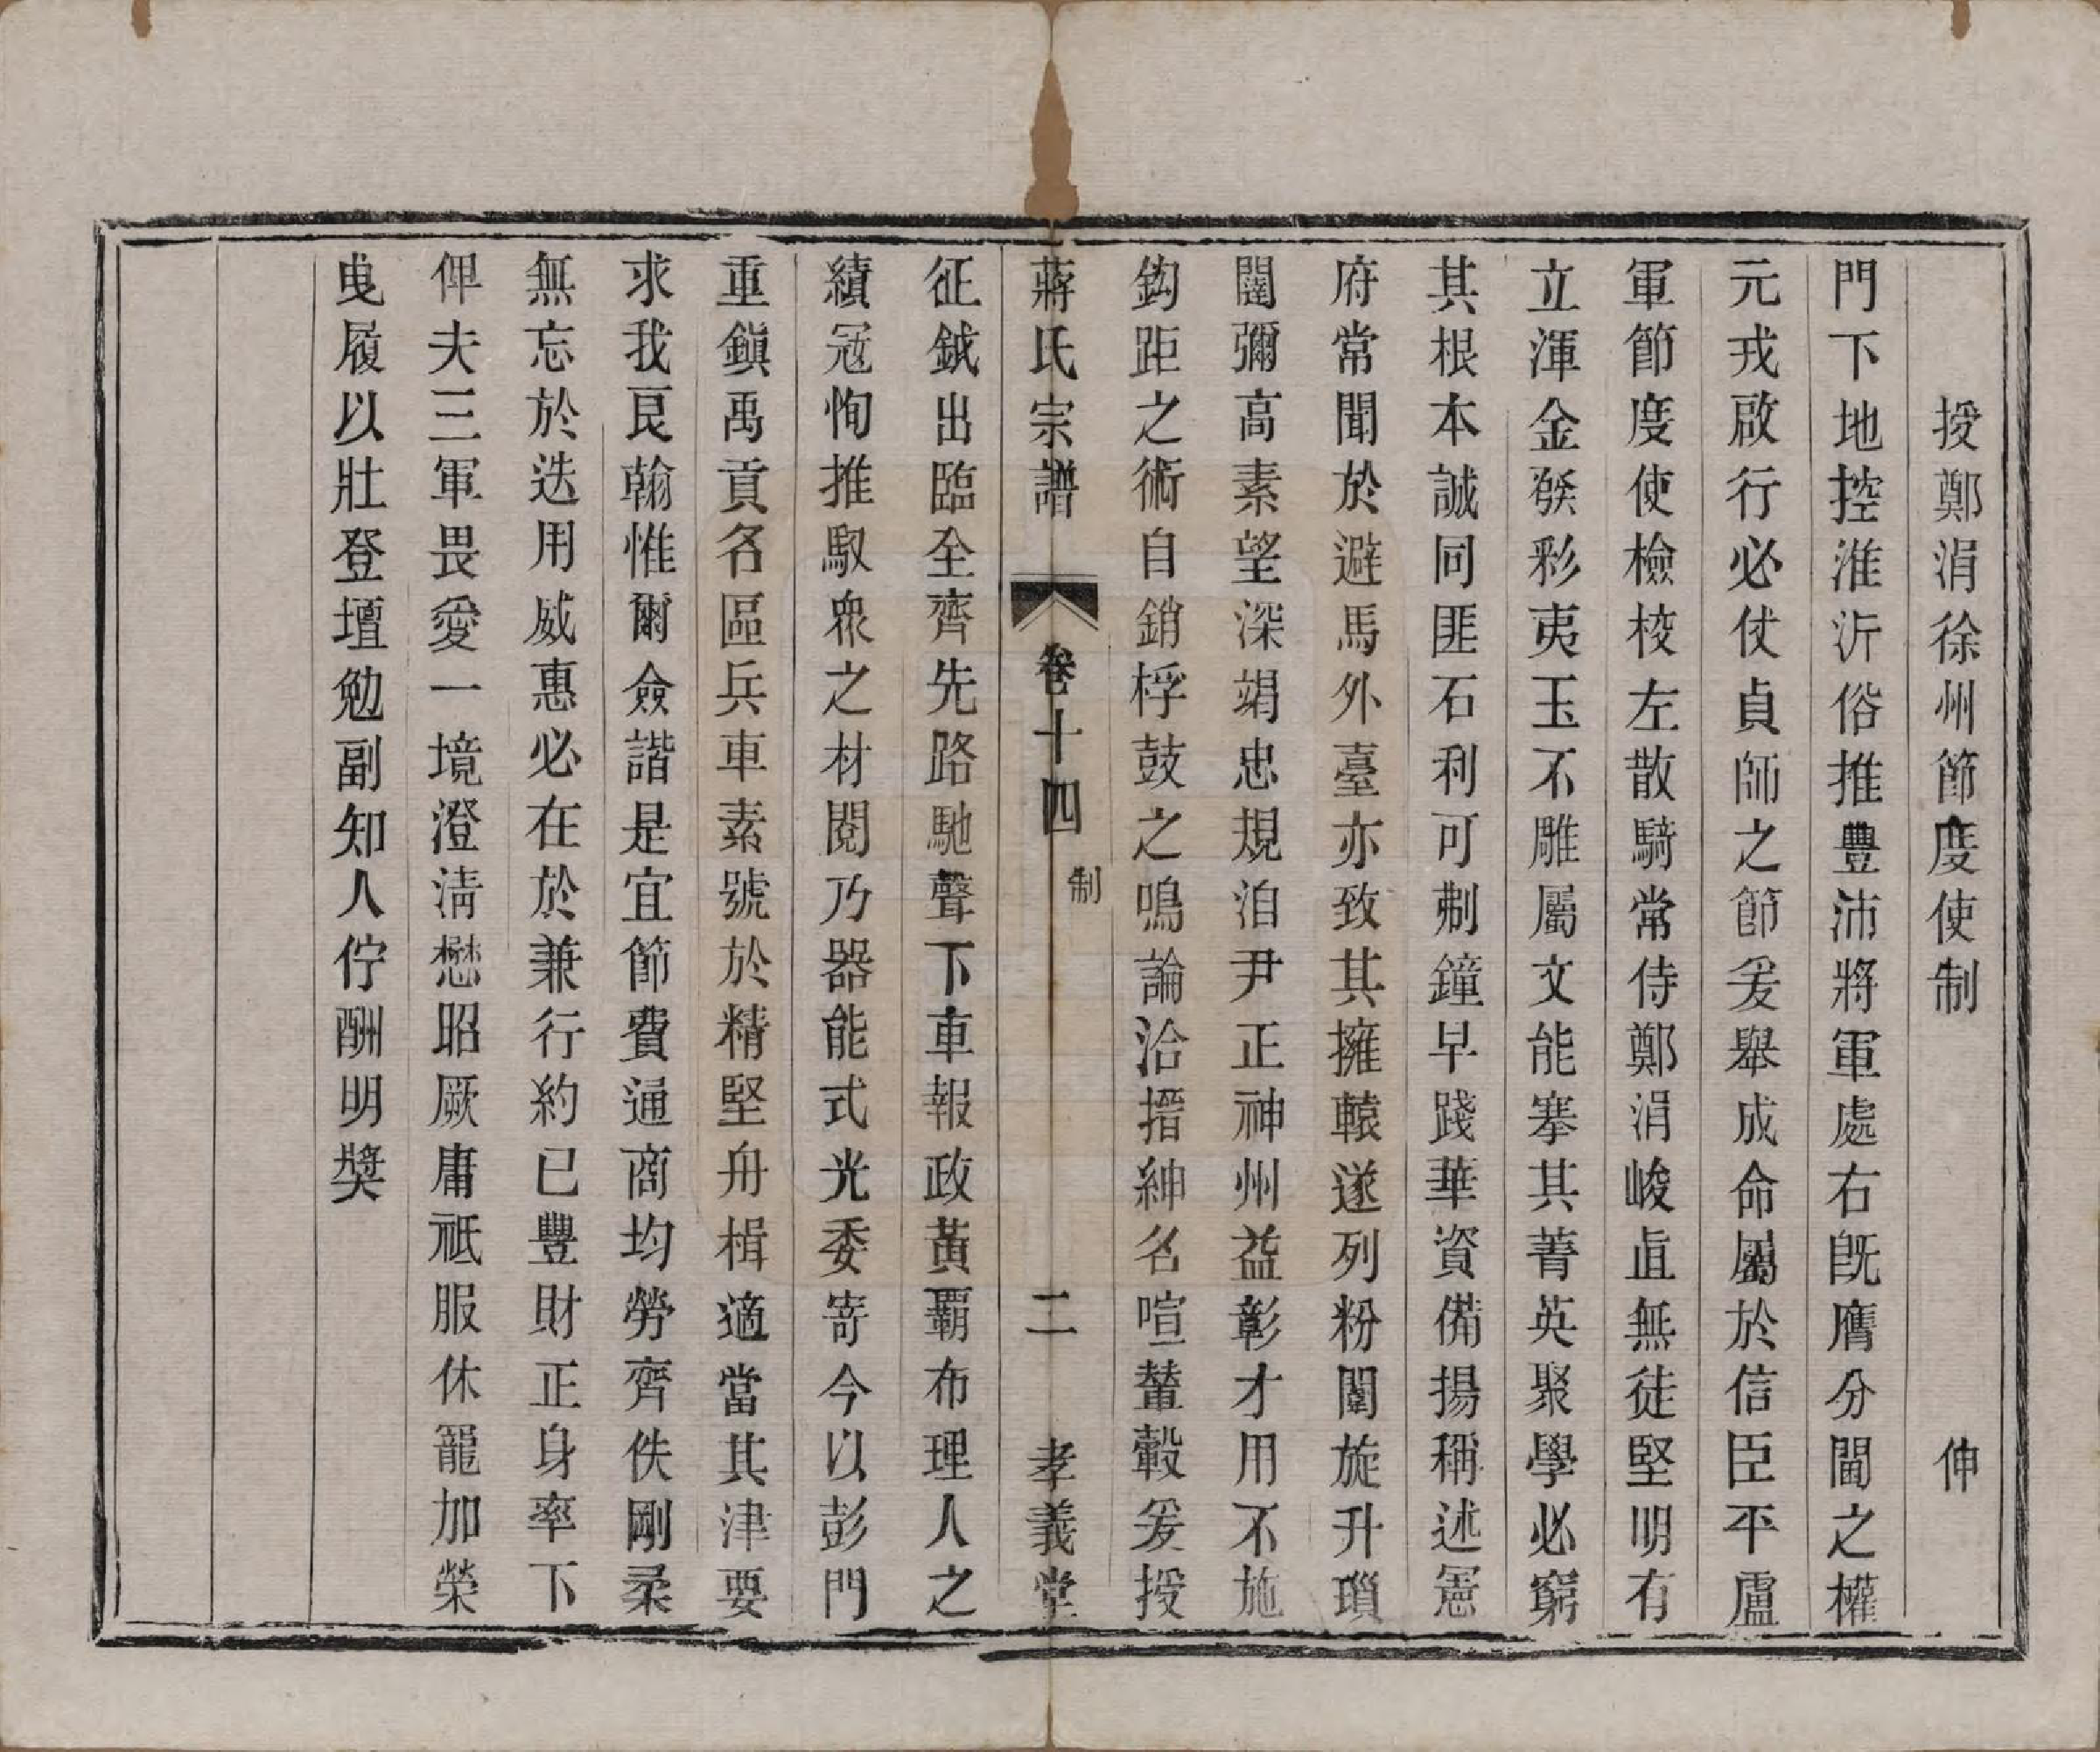 授鄭涓徐州節度使制　伸
門下地控淮沂俗推豐沛將軍處右旣膺分閫之權
元戎啟行必仗貞師之節爰舉成命屬於信臣平盧
軍節度使檢校左散騎常侍鄭涓峻直無徒堅明有
立渾金發彩夷玉不雕屬文能搴其菁英聚學必窮
其根本誠同匪石利可剸鐘早踐華資備揚稱述憲
府常聞於避馬外臺亦致其擁轅遂列粉闈旋升瑣
闥彌高素望深竭忠規洎尹正神州益彰才用不施
鈎距之術自銷桴鼓之鳴論洽搢紳名喧輦轂爰授
蔣氏宗譜　卷十四　制　二　孝義堂
征鉞出臨全齊先路馳聲下車報政黃霸布理人之
績冦恂推馭衆之材閱乃器能式光委寄今以彭門
重鎭禹貢名區兵車素號於精堅舟楫適當其津要
求我艮翰惟爾僉諧是宜節費通商均勞齊佚剛柔
無忘於迭用威惠必在於兼行約已豐財正身率下
俾夫三軍畏愛一境澄淸懋昭厥庸祗服休寵加榮
曳履以壯登壇勉副知人佇酬明獎